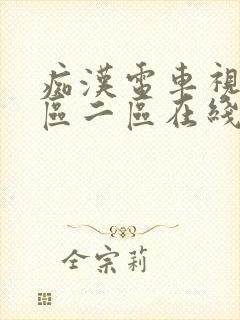 痴漢電車視
區二區在綫
全宗莉